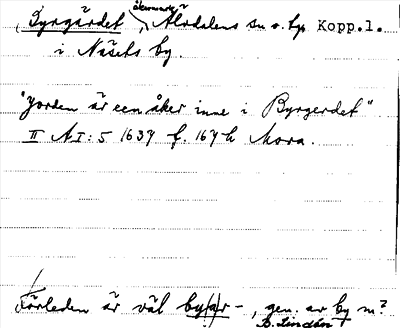 Byrgärdet, åkermark, Älvdalens sn o. tg Kopp.l.
i Näsets by.
"Jorden är een åker inne i Byrgerdet"
II AI: 5 1637 f. 167 h Mora.
Förleden är väl by(a)r-, gen. av by m?
B. Lindén